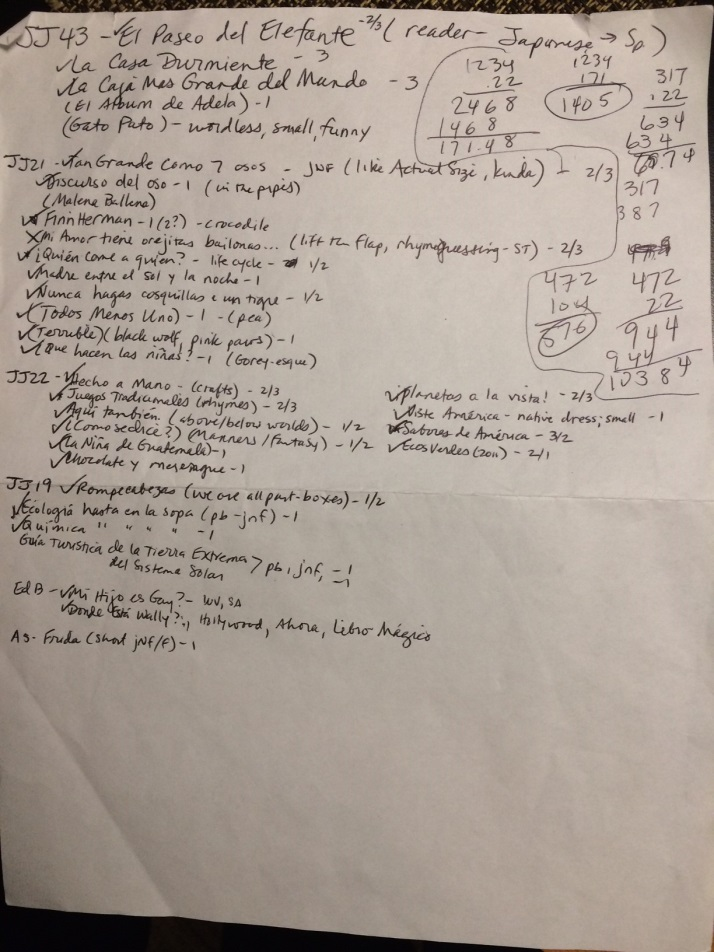 JJ43 - ✓El Paseo del Elefante -2/3 (reader- Japanese → Sp)
✓La Casa Durmiente - 3
✓La Caja Mas Grande del Mundo - 3
(El Album de Adela) - 1
(Gato Pato) - wordless, small, funny
1234
.22
2468
1468
171.48
1234
171
1405
317
.22
634
634
69.74
317
387
JJ21 - ✓Tan Grande Como 7 osos - JNF (like Actual Size, kinda) - 2/3
✓Discurso del oso - 1 (in the pipes)
(Malena Ballena)
✓Finn Herman - 1(2?) - crocodile
XMi Amor tiene orejitas bailonas... (lift the flap, rhyme guessing - ST) - 2/3
✓¿Quién come a quien? - life cycle - 1/2
✓Madre entre el sol y la noche - 1
✓Nunca hagas cosquillas a un tigre - 1/2
✓(Todos Menos Uno) - 1 - (pea)
✓(Terruble) (black wolf, pink paws) - 1
✓¿Que hacen las niñas? - 1 (Gorey-esque)
472
104
576
472
22
944
944
10384
JJ22 - ✓Hecho a Mano - (crafts) - 2/3
✓Juegos Tradicionales (rhymes) - 2/3
✓Aquí también (above/below worlds) - 1/2
✓(¿Como se dice?) (Manners/Fantasy) - 1/2
✓(La Niña de Guatemala) - 1
✓Chocolate y merengue - 1
✓¡Planetas a la vista! - 2/3
✓Viste América - native dress; small - 1
✓Sabores de América - 3/2
✓Ecos Verdes (2011) - 2/1
JJ19 ✓Rompecabezas (we are all part-boxes) - 1/2
✓Ecología hasta en la sopa (pb-jnf) - 1
✓Química " " " " - 1
Guía Turística de la Tierra Extrema > pb, jnf, - 1
del Sistema Solar - 1
Ed B - ✓Mi Hijo es Gay? - WV, SA
✓Donde Está Wally?:, Hollywood, Ahora, Libro Mágico
A9- Fruda (short jNF/F) - 1